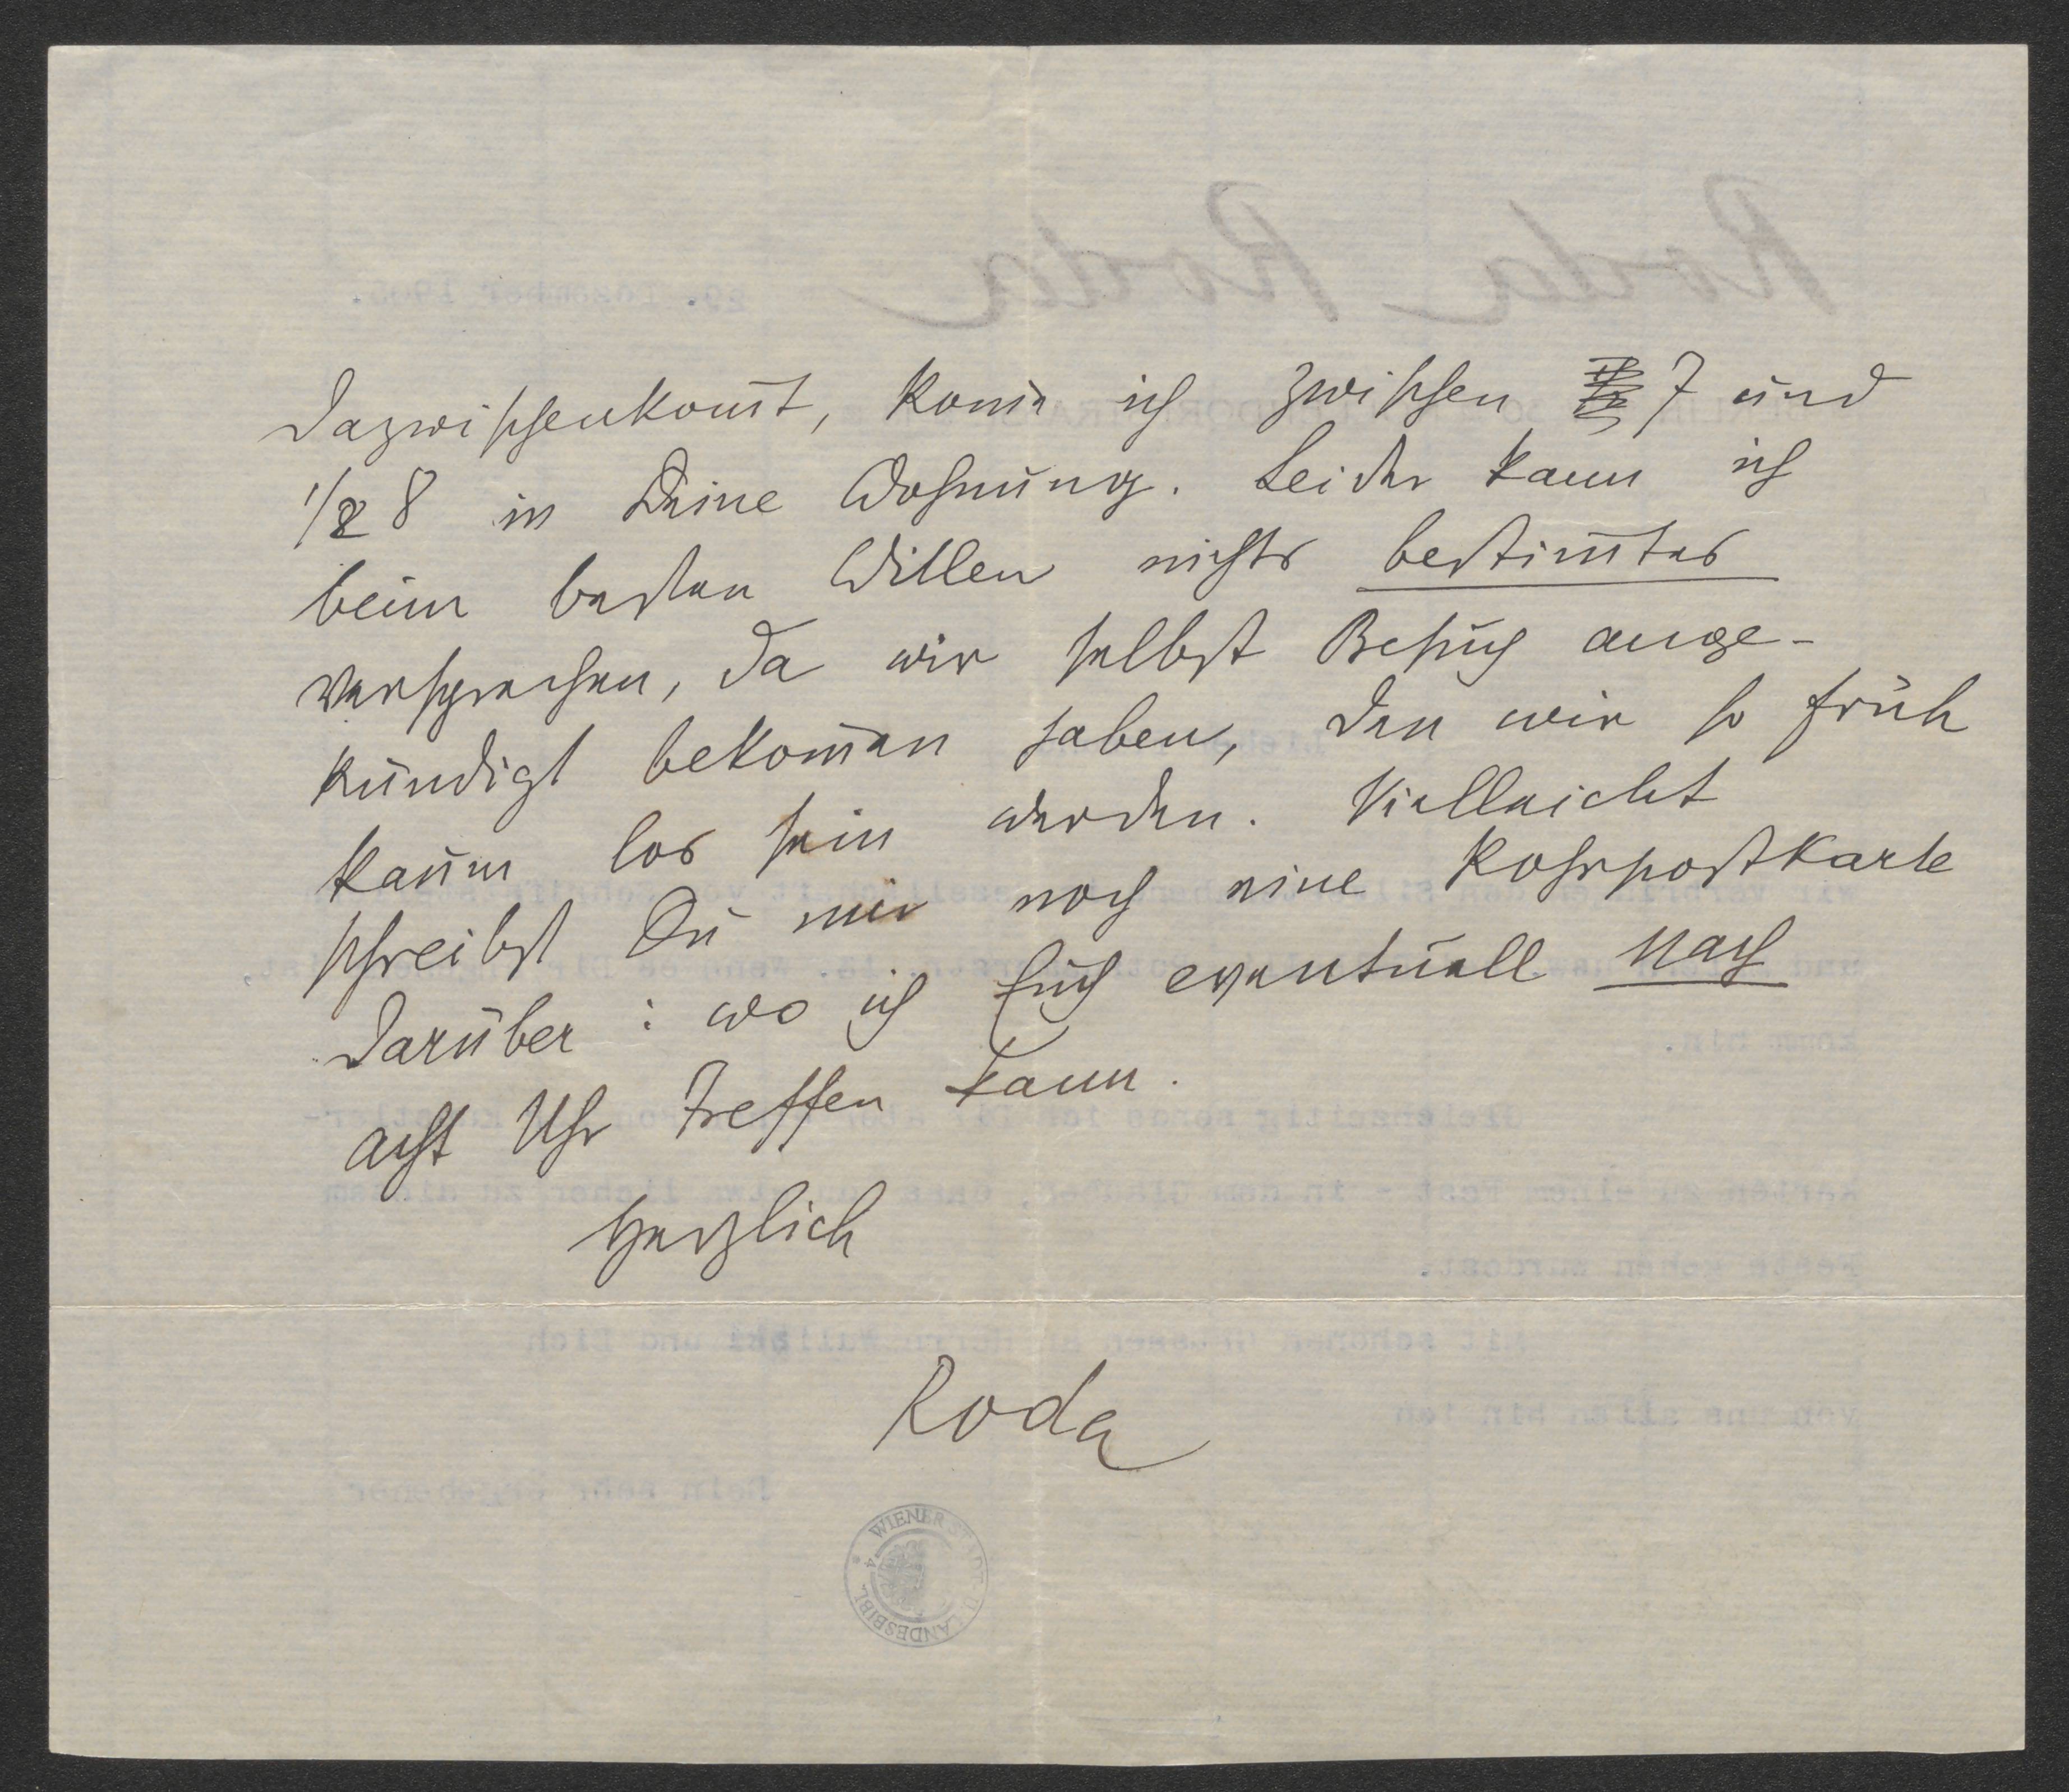 dazwischenkom̄t, kom̄ ich zwischen 7 und
1/2 8 in Deine Wohnung. Leider kann ich
beim besten Willen nichts bestim̄tes
versprechen, da wir selbst Besuch ange-
kündigt bekom̄en haben, den wir so früh
kaum los sein werden. Vielleicht
schreibst Du mir noch eine Rohrpostkarte
darüber: wo ich Euch eventuell nach
acht Uhr treffen kann.
Herzlich
Roda
WIENER STADT- U. LANDESBIBL.